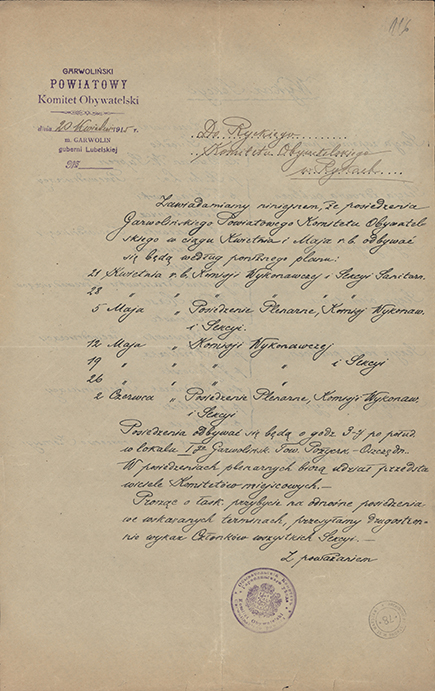 116
GARWOLIŃSKI
POWIATOWY
Komitet Obywatelski
dnia 20 Kwietnia 1915 r.
m. GARWOLIN
guberni Lubelskiej
Do Ryckiego
Komitetu Obywatelskiego
w Rykach
Zawiadamiamy niniejszem, że posiedzenia
Garwolińskiego Powiatowego Komitetu Obywatel-
skiego w ciągu Kwietnia i Maja r. b. odbywać
się będą według poniższego planu:
21 Kwietnia r. b. Komisji Wykonawczej i Sekcyi Sanitarn.
28 " " " " "
5 Maja " Posiedzenie Plenarne, Komisji Wykonaw.
i Sekcyi.
12 Maja " Komisji Wykonawczej
19 " " " " i Sekcyi
26 " " " "
2 Czerwca " Posiedzenie Plenarne, Komisji Wykonaw.
i Sekcyi
Posiedzenia odbywać się będą o godz 3-ej po połud.
w lokalu 1go Garwolińsk. Tow. Pożyczk.-Oszczędn.
W posiedzeniach plenarnych biorą udział przedsta-
wiciele Komitetów miejscowych.-
Prosząc o łask. przybycie na odnośne posiedzenia
we wskazanych terminach, przesyłamy drugostron-
nie wykaz Członków wszystkich Sekcyi.-
Z poważaniem